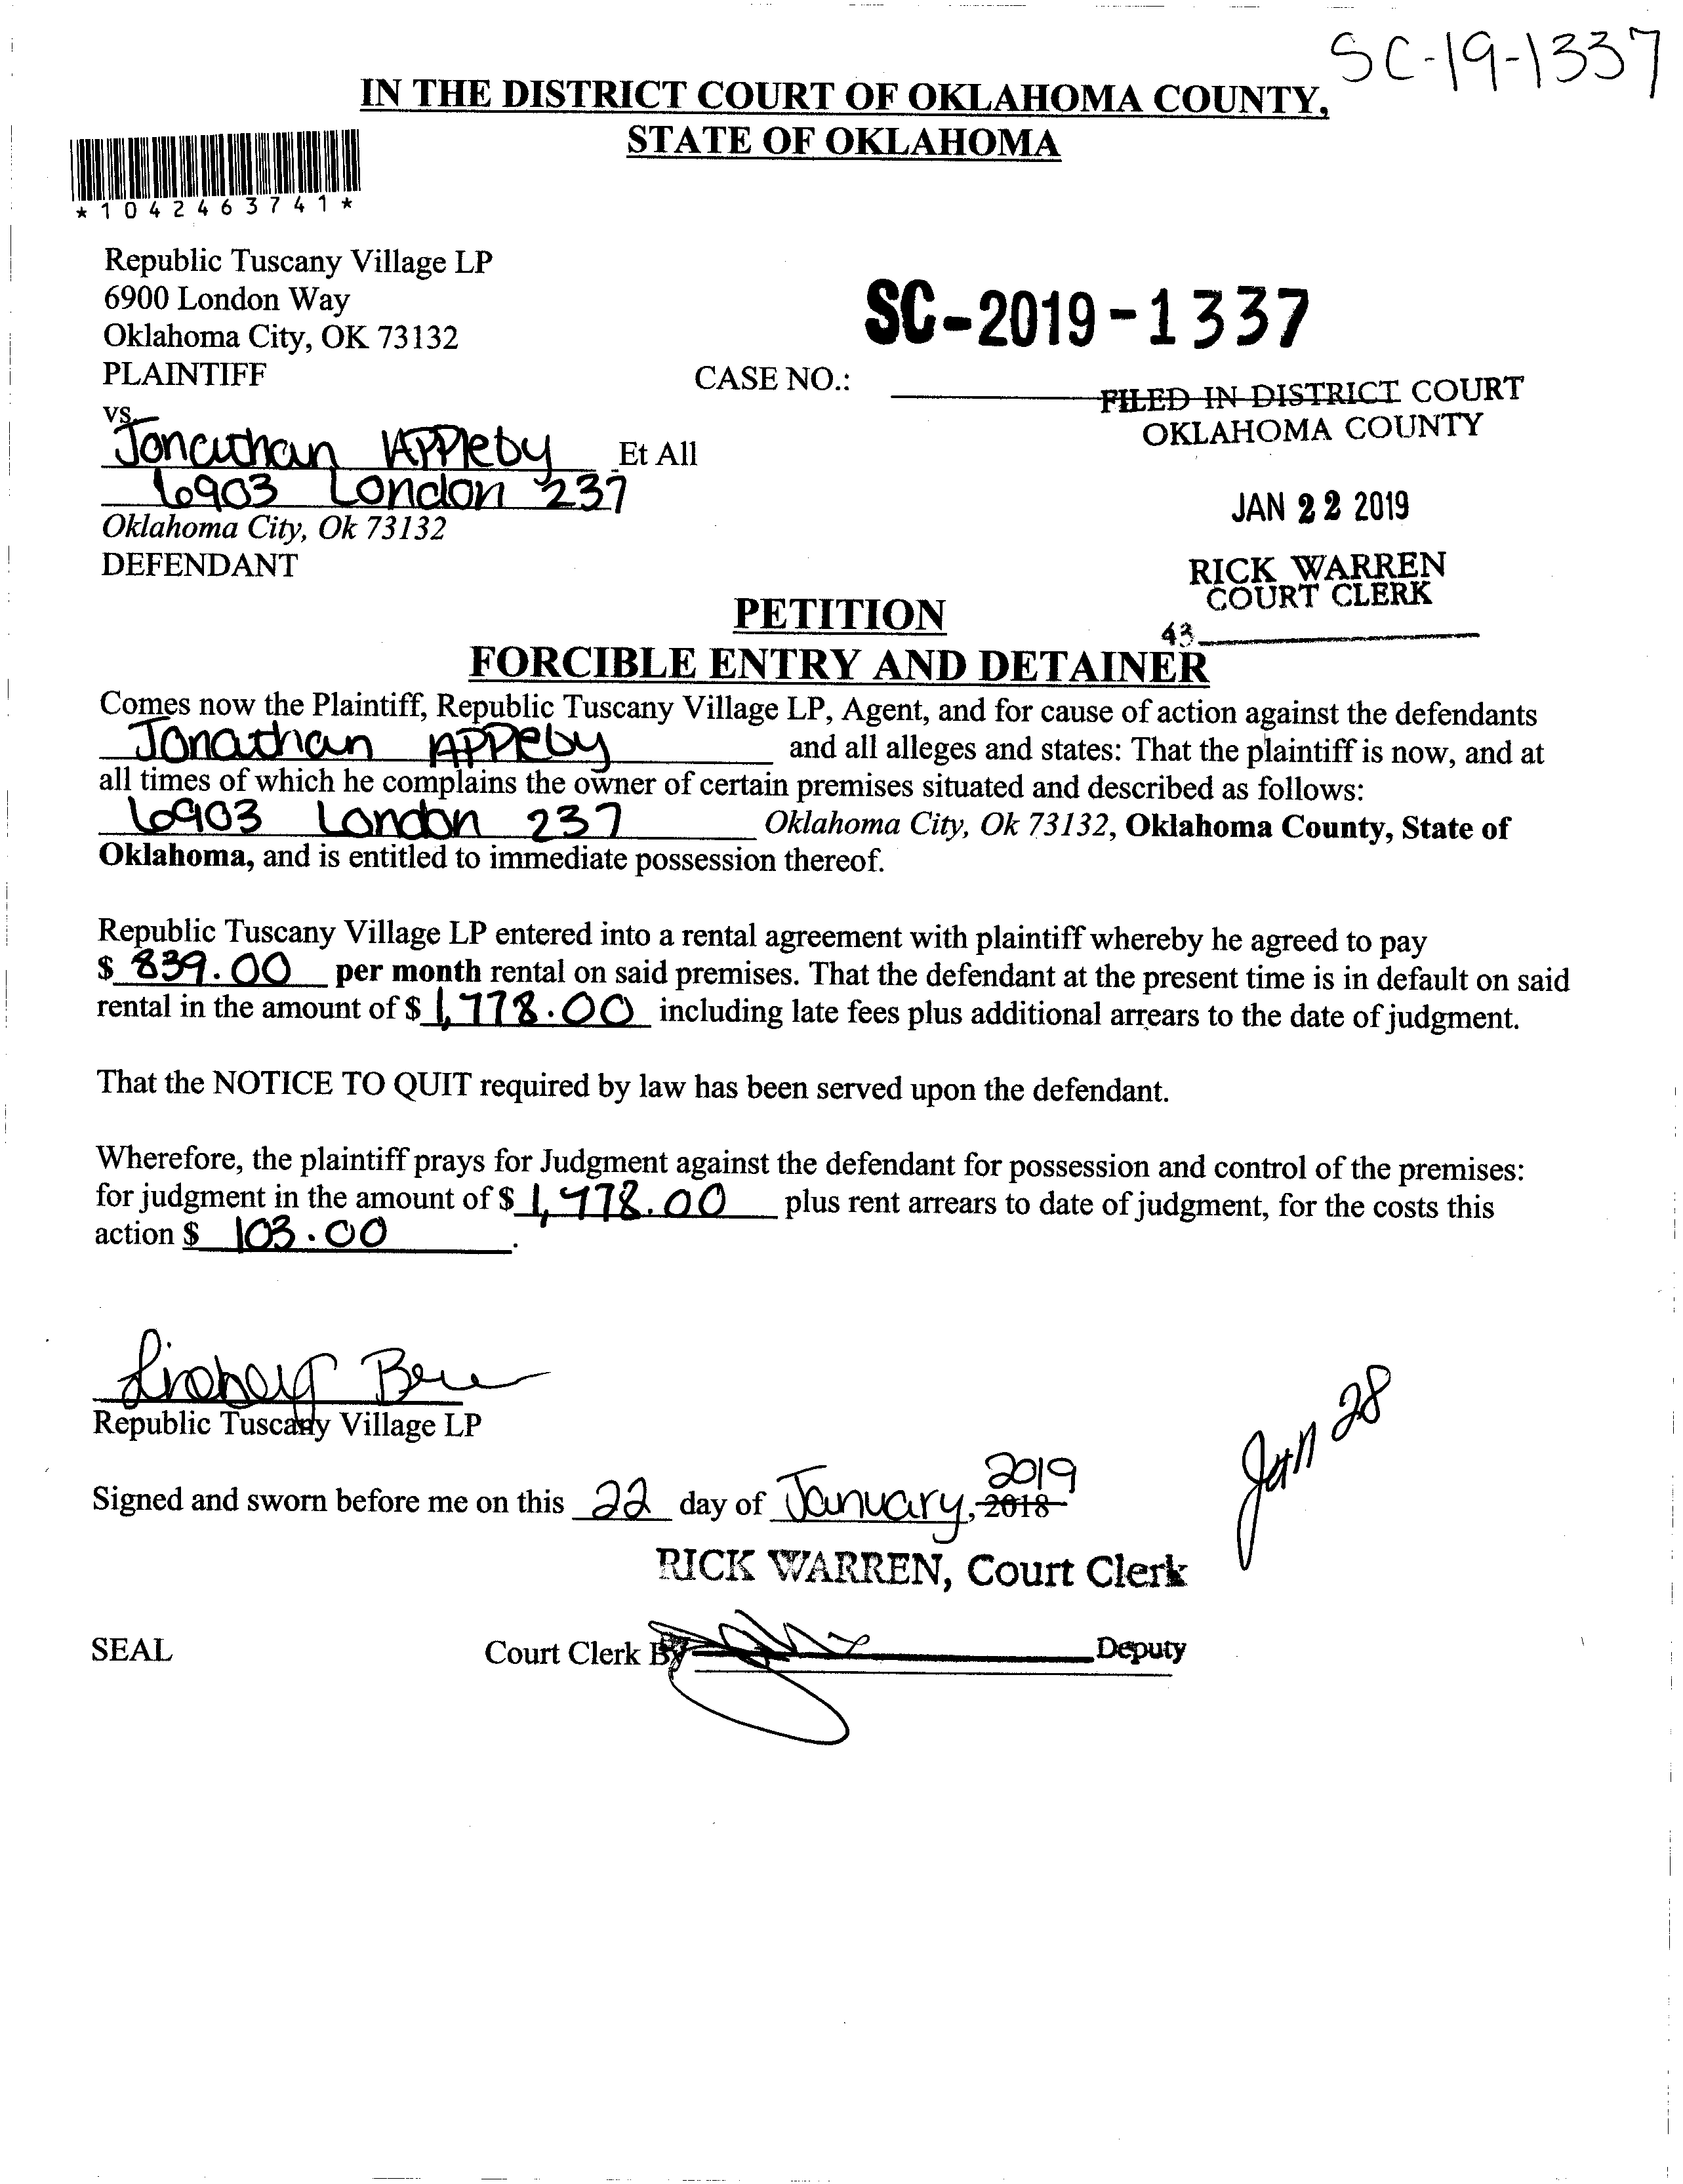 SC-19-1337
IN THE DISTRICT COURT OF OKLAHOMA COUNTY,
STATE OF OKLAHOMA
*1042463741*
Republic Tuscany Village LP
6900 London Way
Oklahoma City, OK 73132
PLAINTIFF
SC-2019-1337
CASE NO.:
FILED IN DISTRICT COURT
OKLAHOMA COUNTY
vs.
Jonathan Appleby Et All
6903 London 237
Oklahoma City, Ok 73132
DEFENDANT
JAN 22 2019
RICK WARREN
COURT CLERK
43
PETITION
FORCIBLE ENTRY AND DETAINER
Comes now the Plaintiff, Republic Tuscany Village LP, Agent, and for cause of action against the defendants
Jonathan Appleby and all alleges and states: That the plaintiff is now, and at
all times of which he complains the owner of certain premises situated and described as follows:
6903 London 237 Oklahoma City, Ok 73132, Oklahoma County, State of
Oklahoma, and is entitled to immediate possession thereof.
Republic Tuscany Village LP entered into a rental agreement with plaintiff whereby he agreed to pay
$ 839.00 per month rental on said premises. That the defendant at the present time is in default on said
rental in the amount of $ 1,778.00 including late fees plus additional arrears to the date of judgment.
That the NOTICE TO QUIT required by law has been served upon the defendant.
Wherefore, the plaintiff prays for Judgment against the defendant for possession and control of the premises:
for judgment in the amount of $ 1,778.00 plus rent arrears to date of judgment, for the costs this
action $ 103.00.
Republic Tuscany Village LP
Jan 28
Signed and sworn before me on this 22 day of January, 2018 2019
RICK WARREN, Court Clerk
SEAL
Court Clerk By Deputy